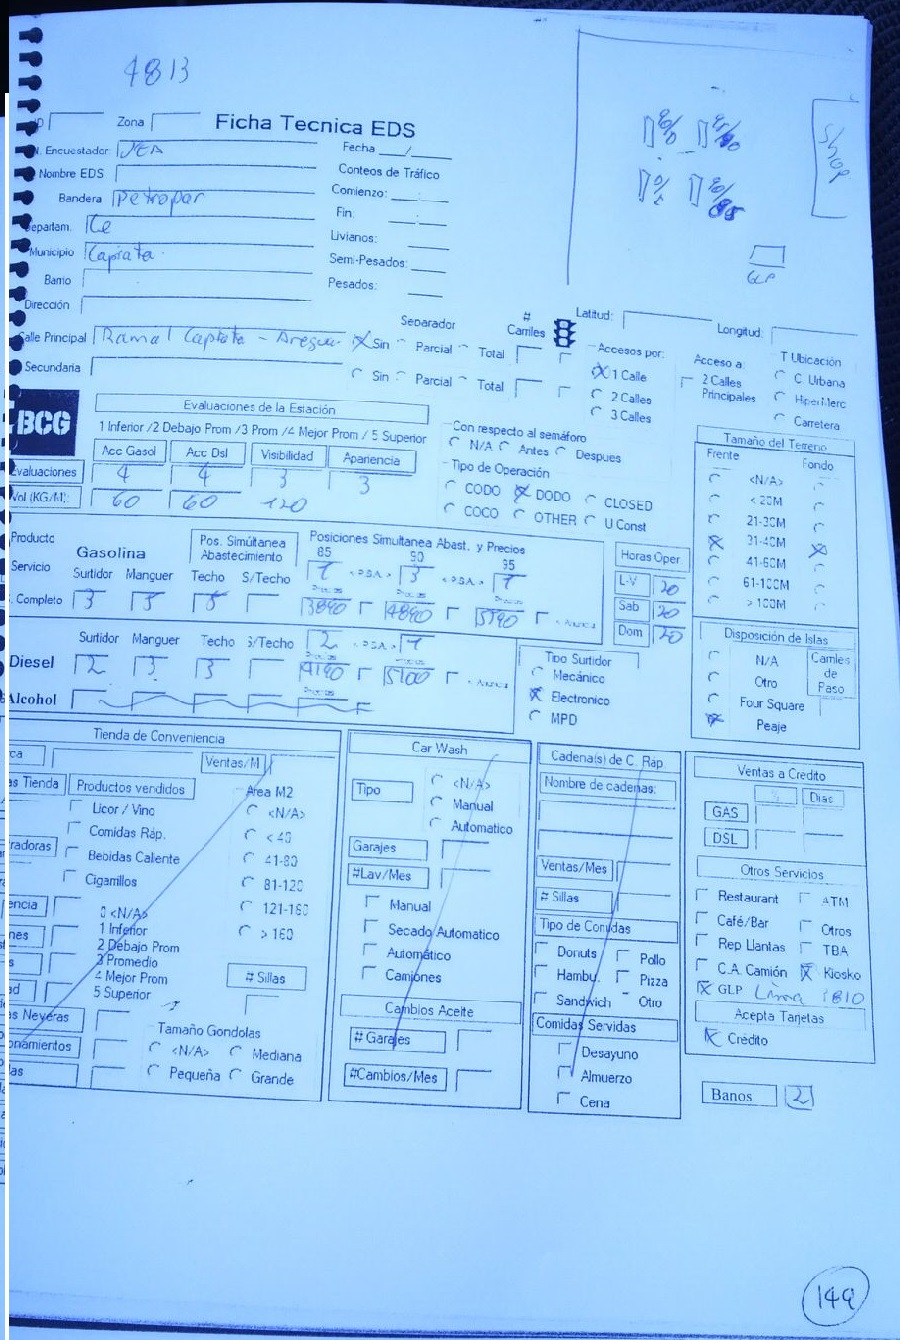 4813
Zona
Ficha Tecnica EDS
Shop
GLP
Encuestador
Fecha
Nombre EDS
Conteos de Tráfico
Bandera Petropar
Comienzo:
Departam. Ce
Fin:
Municipio Capiata
Livianos:
Semi-Pesados:
Barrio
Pesados:
Dirección
Separador
# Carriles
Latitud:
Longitud:
Calle Principal Ramal Capiata - Aregua
Sin Parcial Total
Secundaria
Sin Parcial Total
Accesos por:
1 Calle
2 Calles
3 Calles
Acceso a:
2 Calles Principales
T Ubicación
C Urbana
HiperMerc
Carretera
BCG
Evaluaciones de la Estación
1 Inferior /2 Debajo Prom /3 Prom /4 Mejor Prom / 5 Superior
Acc Gasol Acc Dsl Visibilidad Apariencia
Evaluaciones 4 4 3 3
Vol (KG/M): 60 60 120
Con respecto al semáforo
N/A Antes Despues
Tipo de Operación
CODO DODO CLOSED
COCO OTHER U Const
Tamaño del Terreno
Frente Fondo
<N/A>
< 20M
21-30M
31-40M
41-60M
61-100M
> 100M
Producto
Gasolina
Pos. Simúltanea Abastecimiento
Posiciones Simultanea Abast. y Precios
85 90 95
Servicio
Surtidor Manguer Techo S/Techo
3
Completo 3
4890
Horas Oper
L-V 20
Sab 20
Dom 20
Surtidor Manguer Techo S/Techo 2
Diesel 2 3 3
Alcohol
Tipo Surtidor
Mecánico
Electronico
MPD
Disposición de Islas
N/A
Otro
Four Square
Peaje
Carriles de Paso
Tienda de Conveniencia
Ventas/M
Tienda
Productos vendidos
Licor / Vino
Comidas Ráp.
Bebidas Caliente
Cigarrillos
Area M2
<N/A>
< 40
41-80
81-120
121-160
> 160
0 <N/A>
1 Inferior
2 Debajo Prom
3 Promedio
4 Mejor Prom
5 Superior
# Sillas
Neveras
Tamaño Gondolas
<N/A> Mediana
Pequeña Grande
Car Wash
Tipo
<N/A>
Manual
Automatico
Garajes
#Lav/Mes
Manual
Secado Automatico
Automático
Camiones
Cambios Aceite
# Garajes
#Cambios/Mes
Cadena(s) de C. Rap.
Nombre de cadenas:
Ventas/Mes
# Sillas
Tipo de Comidas
Donuts Pollo
Hambu. Pizza
Sandwich Otro
Comidas Servidas
Desayuno
Almuerzo
Cena
Ventas a Crédito
% Dias
GAS
DSL
Otros Servicios
Restaurant ATM
Café/Bar Otros
Rep Llantas TBA
C.A. Camión Kiosko
GLP
Acepta Tarjetas
Crédito
Banos 2
149